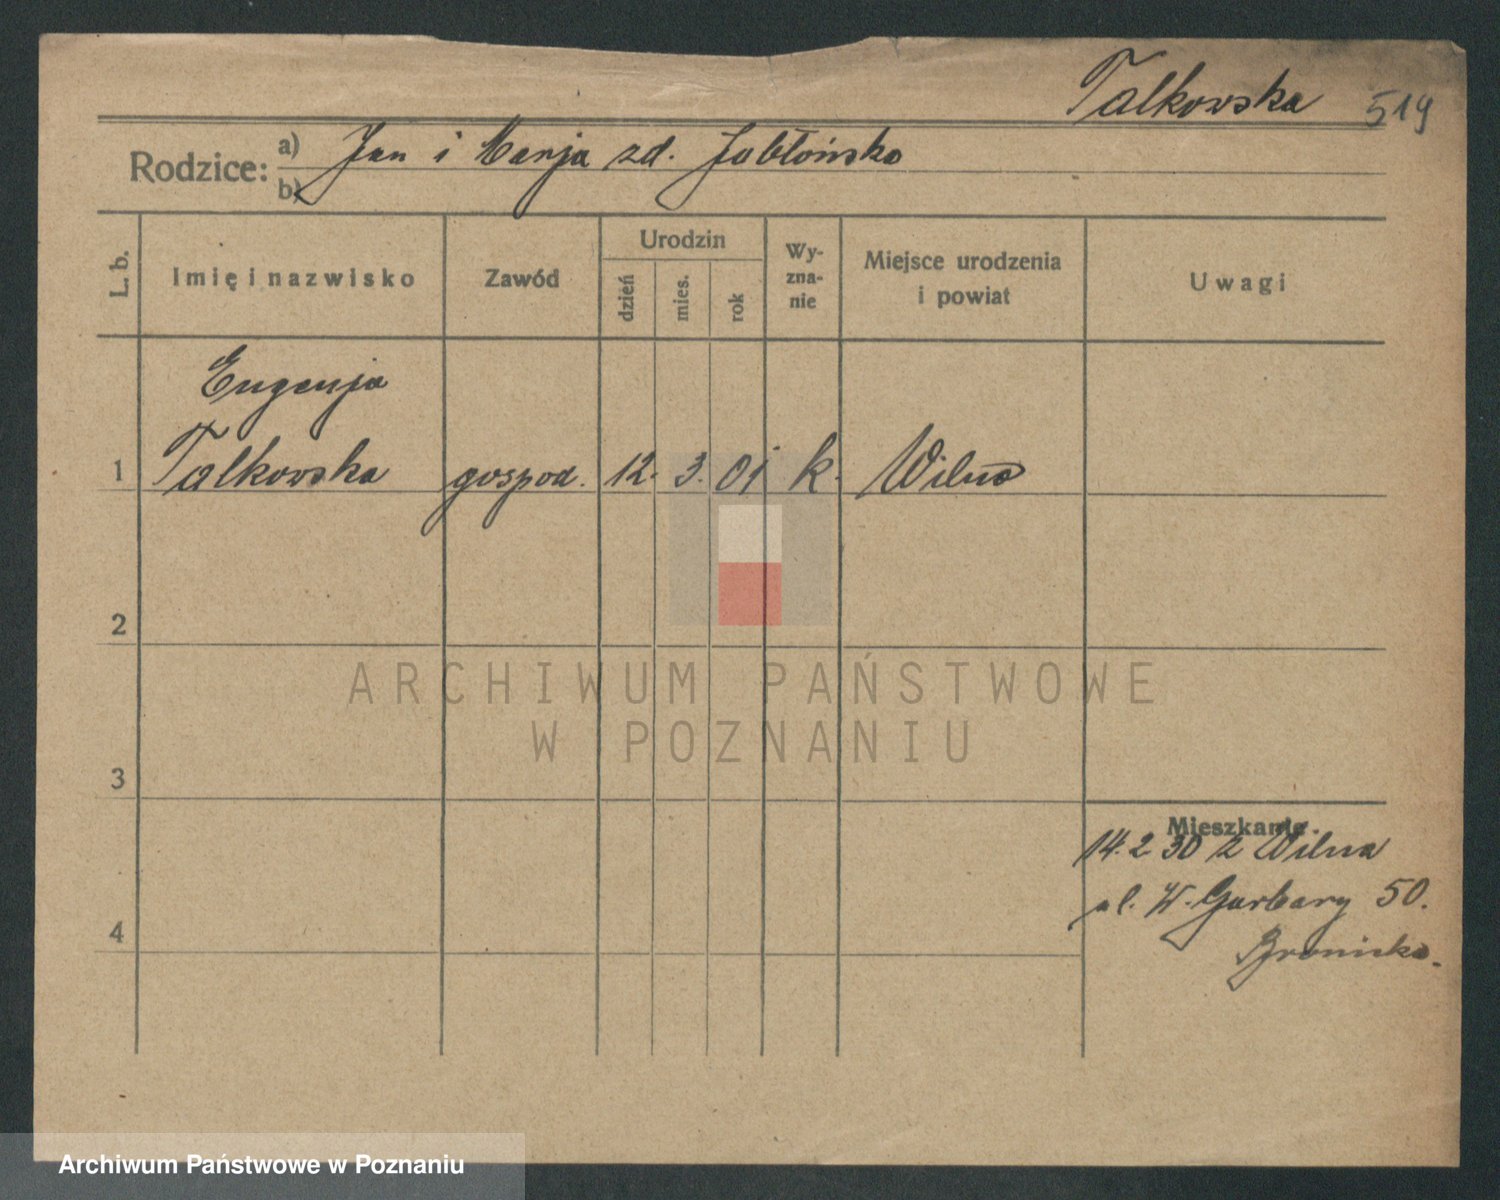 Talkowska 519
Rodzice: a) Jan i Marja zd. Jabłońska
b)
L. b.
Imię i nazwisko
Zawód
Urodzin
dzień
mies.
rok
Wy-
zna-
nie
Miejsce urodzenia
i powiat
Uwagi
Eugenja
1 Talkowska gospod. 12. 3. 01 k. Wilno
2
3
4
Mieszkanie.
14. 2 30 z Wilna
ul. W. Garbary 50.
Bronicka.
ARCHIWUM PAŃSTWOWE
W POZNANIU
Archiwum Państwowe w Poznaniu